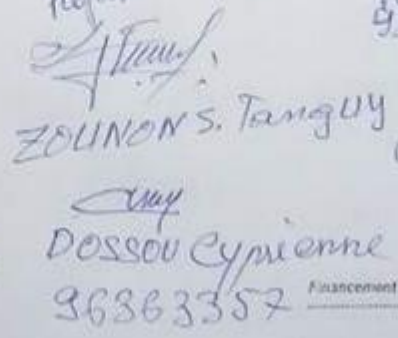 ZOUNON S. Tanguy
DOSSOU Cyprienne
96363357 Financement